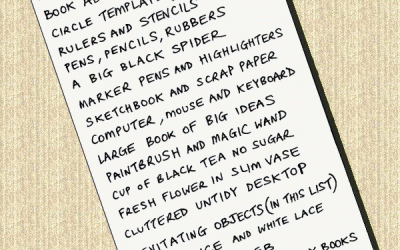 BOOK
CIRCLE TEMPLAT
RULERS AND STENCILS
PENS, PENCILS, RUBBERS
A BIG BLACK SPIDER
MARKER PENS AND HIGHLIGHTERS
SKETCHBOOK AND SCRAP PAPER
COMPUTER, MOUSE AND KEYBOARD
LARGE BOOK OF BIG IDEAS
PAINTBRUSH AND MAGIC WAND
CUP OF BLACK TEA NO SUGAR
FRESH FLOWER IN SLIM VASE
CLUTTERED UNTIDY DESKTOP
OBJECTS (IN THIS LIST)
AND WHITE LACE
BOOKS